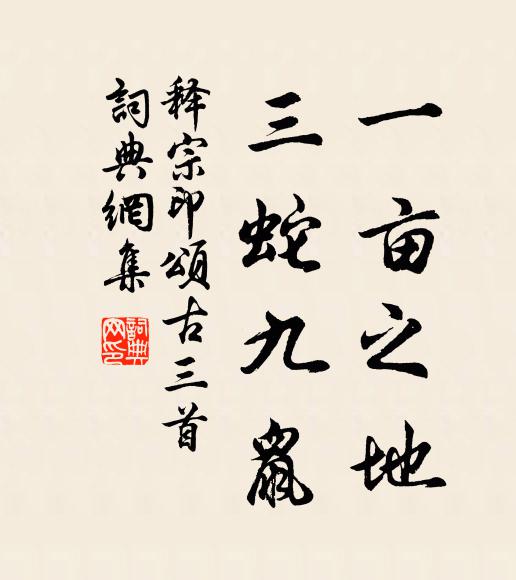 一亩之地
三蛇九鼠
释宗印頌古三首
詞典網集
詞典
网印